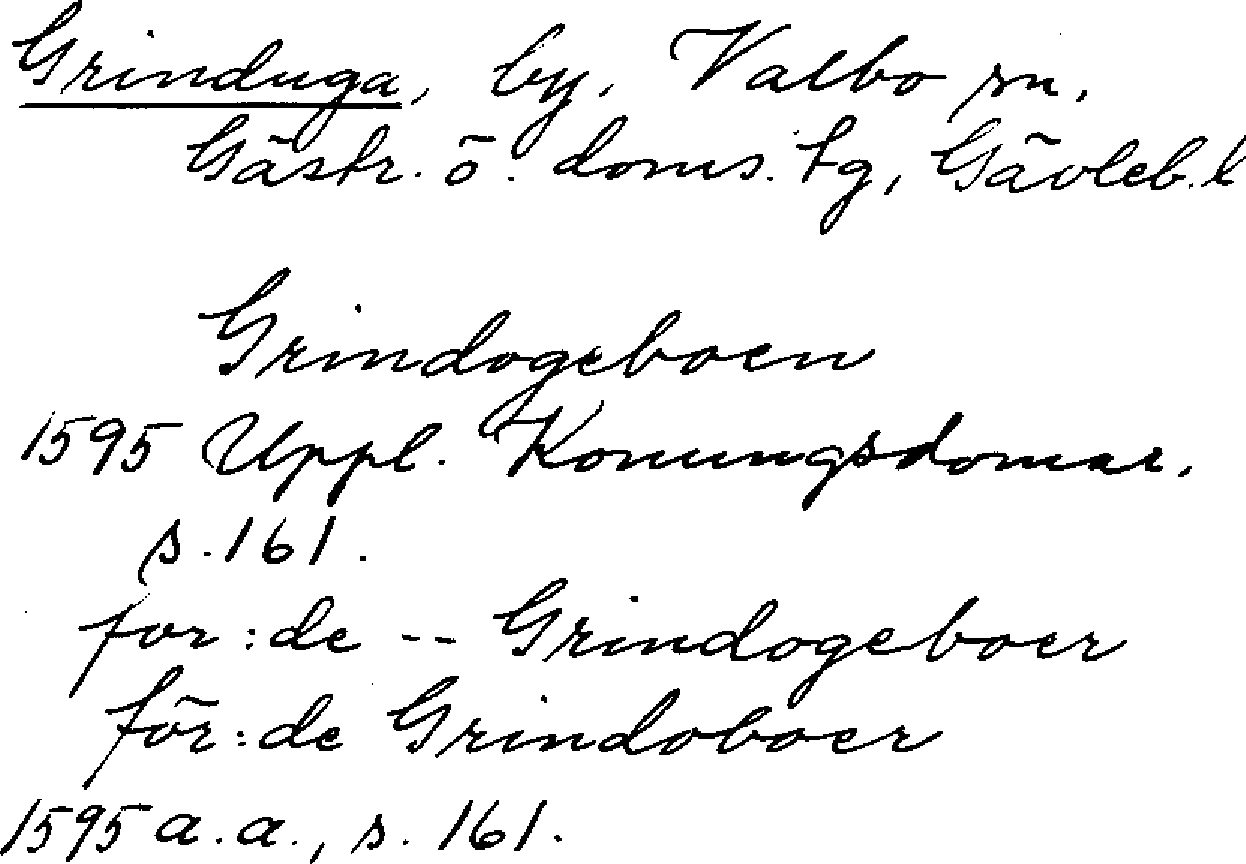 Grinduga, by, Valbo sn,
Gästr. ö. doms. tg, Gävleb. l
Grindogeboen
1595 Uppl. Konungsdomar.
s. 161.
for:de -- Grindogeboer
för:de Grindoboer
1595 a.a., s. 161.